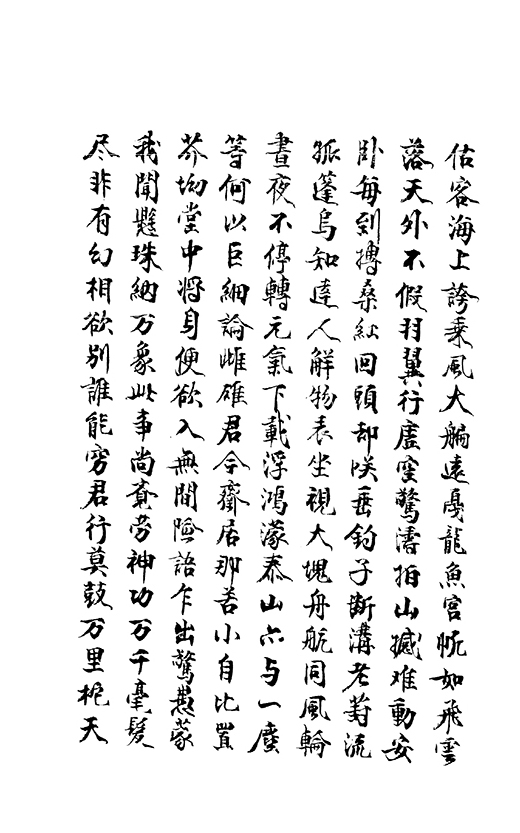 估客海上誇乘風大艑遠戛龍魚宮恍如飛雲
落天外不假羽翼行虛空驚濤拍山撼难動安
卧每到搏桑紅回頭却咲垂釣子斷溝老葑流
孤篷烏知達人解物表坐視大塊舟航同風輪
晝夜不停轉元氣下載浮鴻濛泰山六与一塵
等何以巨細論雌雄君今齋居那苦小自比置
芥坳堂中將身便欲入無間險語乍出驚愚蒙
我聞懸珠納万象此事尚覺劳神功万千毫髮
尽非有幻相欲别誰能穷君行莫鼓万里枻天